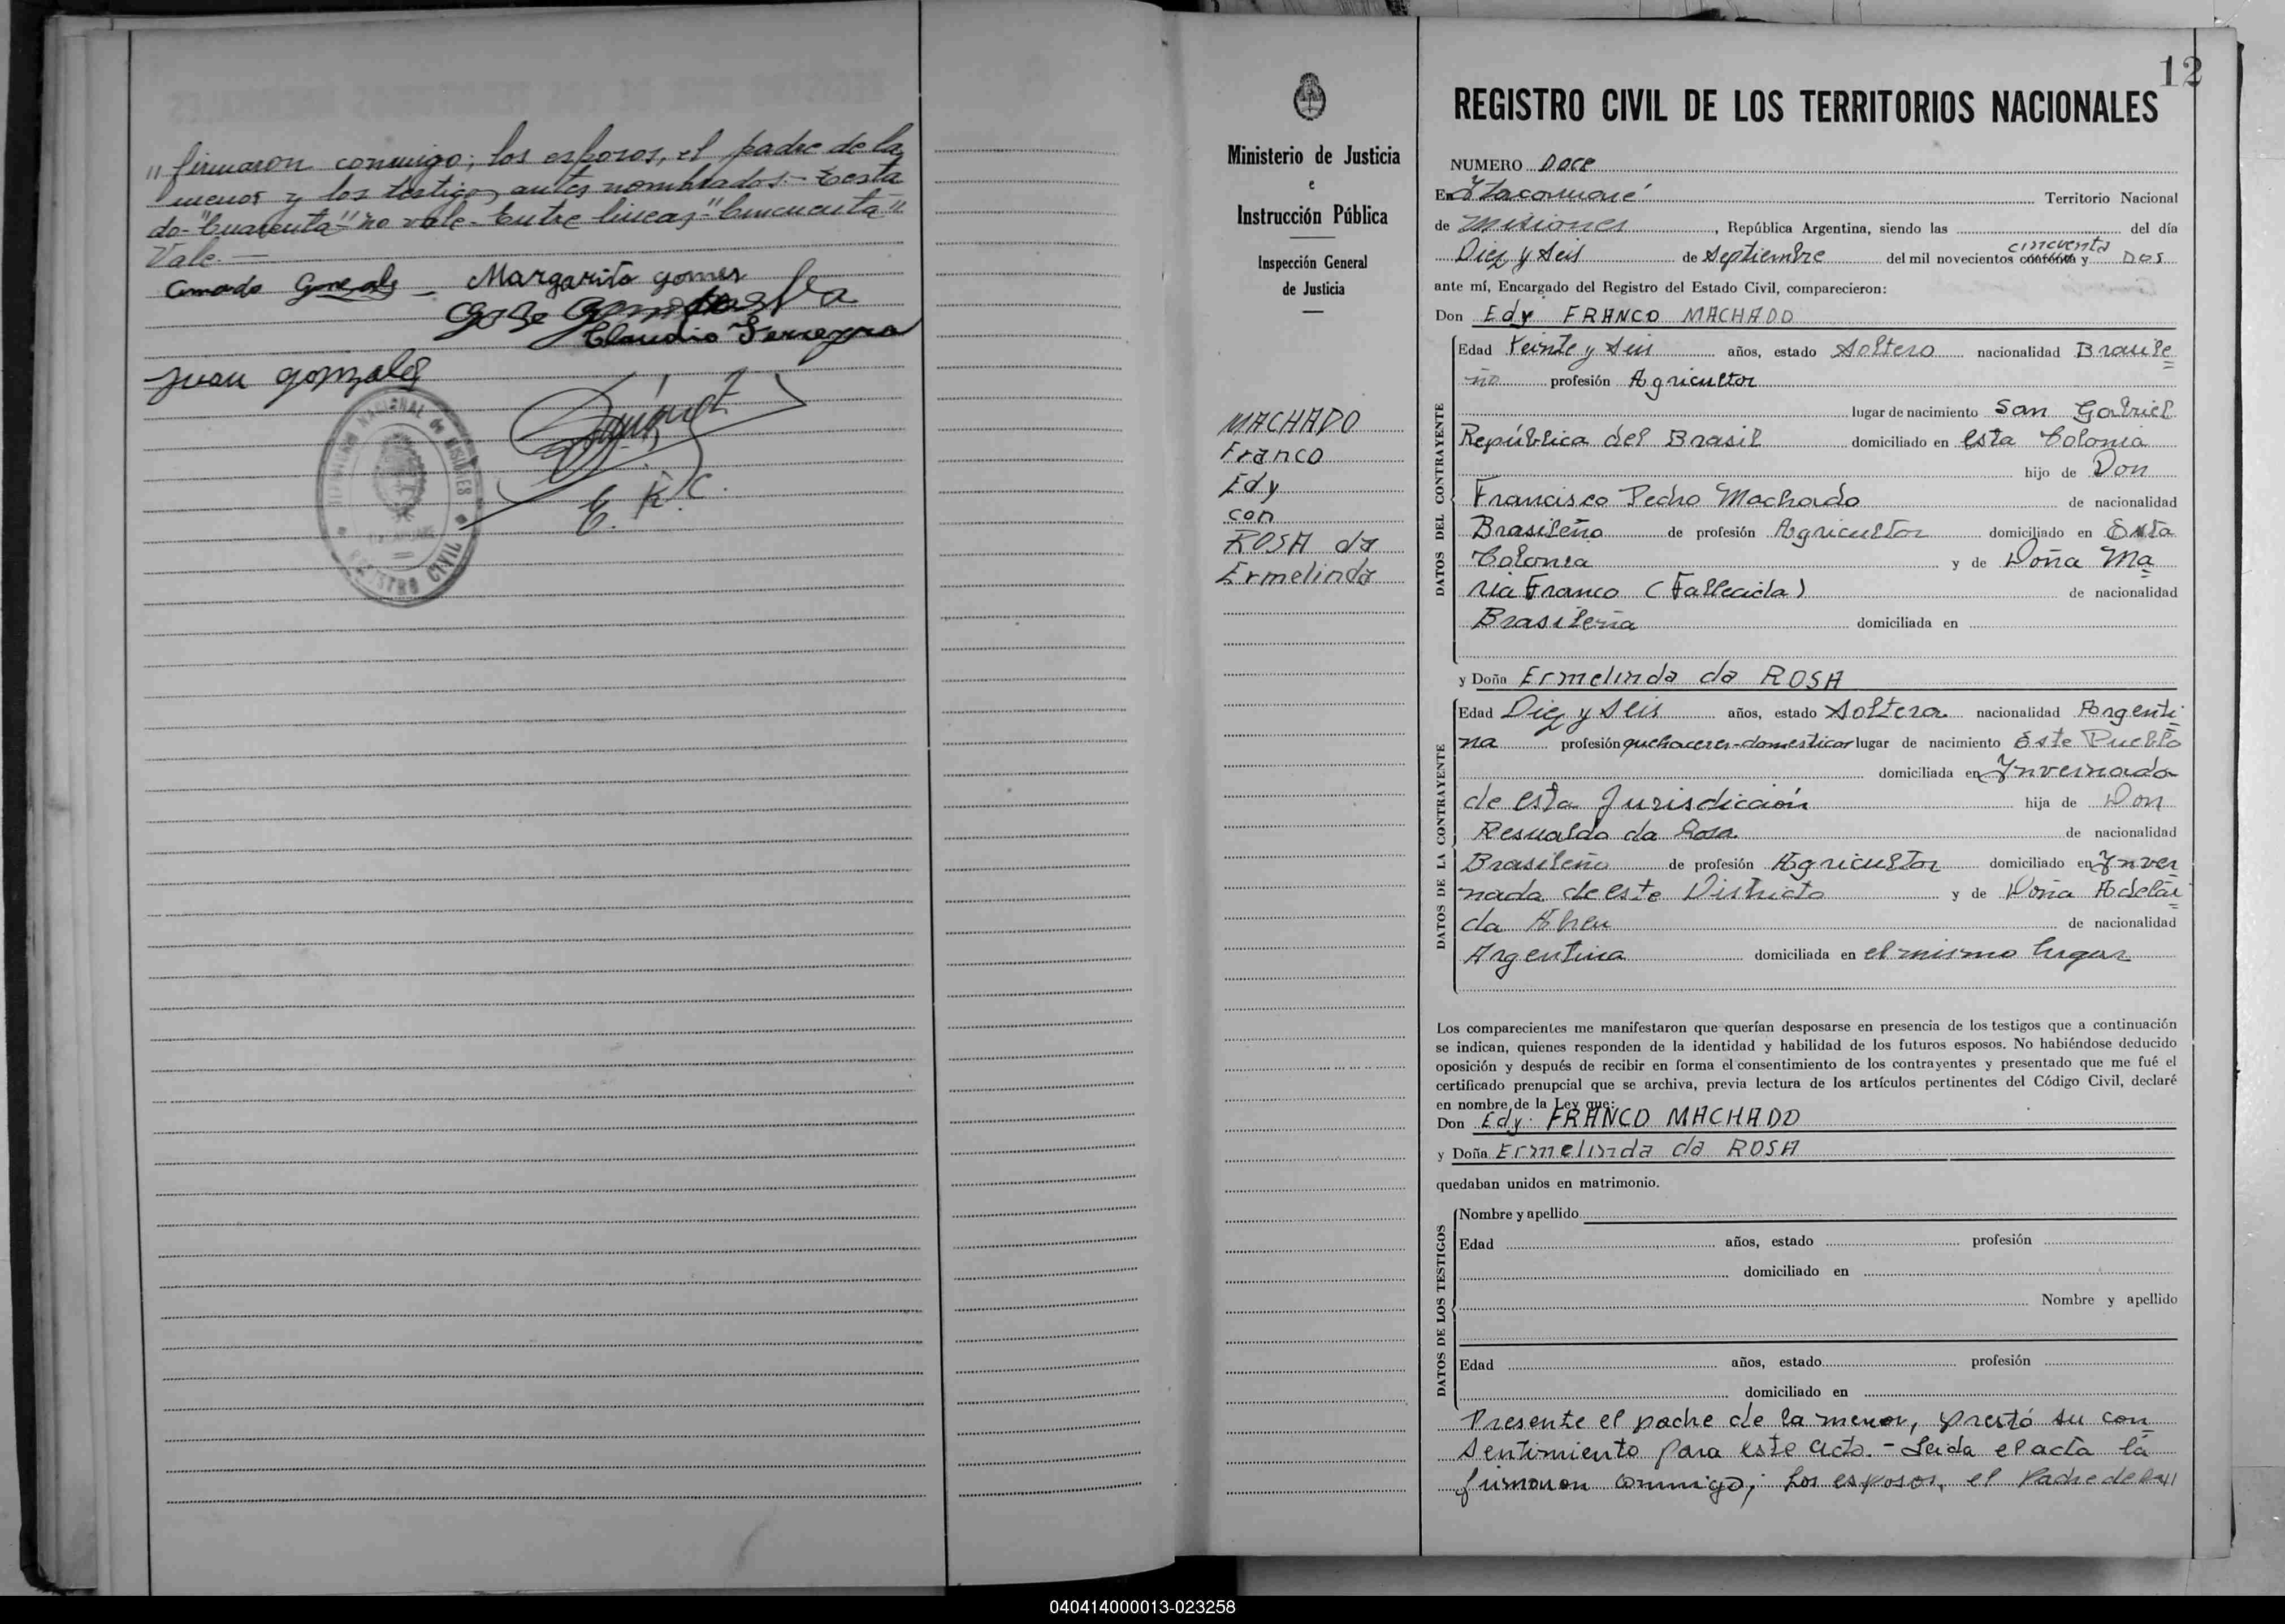 " firmaron conmigo; los esposos, el padre de la
menor y los testigos antes nombrados.- Testa
do-"Cuarenta"-no vale-Entre lineas-"Cincuenta"-
Vale.—
Amado Gonzalez - Margarita gomes
Jose
Claudio Ferreyra
Juan gonzales
E. R. C.
REGISTRO CIVIL
12
Ministerio de Justicia
e
Instrucción Pública
Inspección General
de Justicia
MACHADO
Franco
Edy
con
ROSA da
Ermelinda
REGISTRO CIVIL DE LOS TERRITORIOS NACIONALES
NUMERO Doce
En Itacaruaré Territorio Nacional
de Misiones, República Argentina, siendo las del día
cincuenta
Diez y Seis de Septiembre del mil novecientos cuarenta y Dos
ante mí, Encargado del Registro del Estado Civil, comparecieron:
Don Edy FRANCO MACHADO
DATOS DEL CONTRAYENTE
Edad Veinte y Seis años, estado Soltero nacionalidad Brasile
ño profesión Agricultor
lugar de nacimiento San Gabriel
República del Brasil domiciliado en esta Colonia
hijo de Don
Francisco Pedro Machado de nacionalidad
Brasileño de profesión Agricultor domiciliado en Esta
Colonia y de Doña Ma
ria Franco (Fallecida) de nacionalidad
Brasileña domiciliada en
y Doña Ermelinda da ROSA
DATOS DE LA CONTRAYENTE
Edad Diez y Seis años, estado Soltera nacionalidad Argenti
na profesión quehaceres-domesticos lugar de nacimiento Este Pueblo
domiciliada en Invernada
de esta Jurisdicción hija de Don
Resualdo da Rosa de nacionalidad
Brasileño de profesión Agricultor domiciliado en Inver
nada de este Districto y de Doña Adelai
da Abreu de nacionalidad
Argentina domiciliada en el mismo lugar
Los comparecientes me manifestaron que querían desposarse en presencia de los testigos que a continuación
se indican, quienes responden de la identidad y habilidad de los futuros esposos. No habiéndose deducido
oposición y después de recibir en forma el consentimiento de los contrayentes y presentado que me fué el
certificado prenupcial que se archiva, previa lectura de los artículos pertinentes del Código Civil, declaré
en nombre de la Ley que:
Don Edy FRANCO MACHADO
y Doña Ermelinda da ROSA
quedaban unidos en matrimonio.
DATOS DE LOS TESTIGOS
Nombre y apellido
Edad años, estado profesión
domiciliado en
Nombre y apellido
Edad años, estado profesión
domiciliado en
Presente el padre de la menor, prestó su con
sentimiento para este acto.- Leida el acta la
firmaron conmigo; Los esposos, el Padre de la "
040414000013-023258